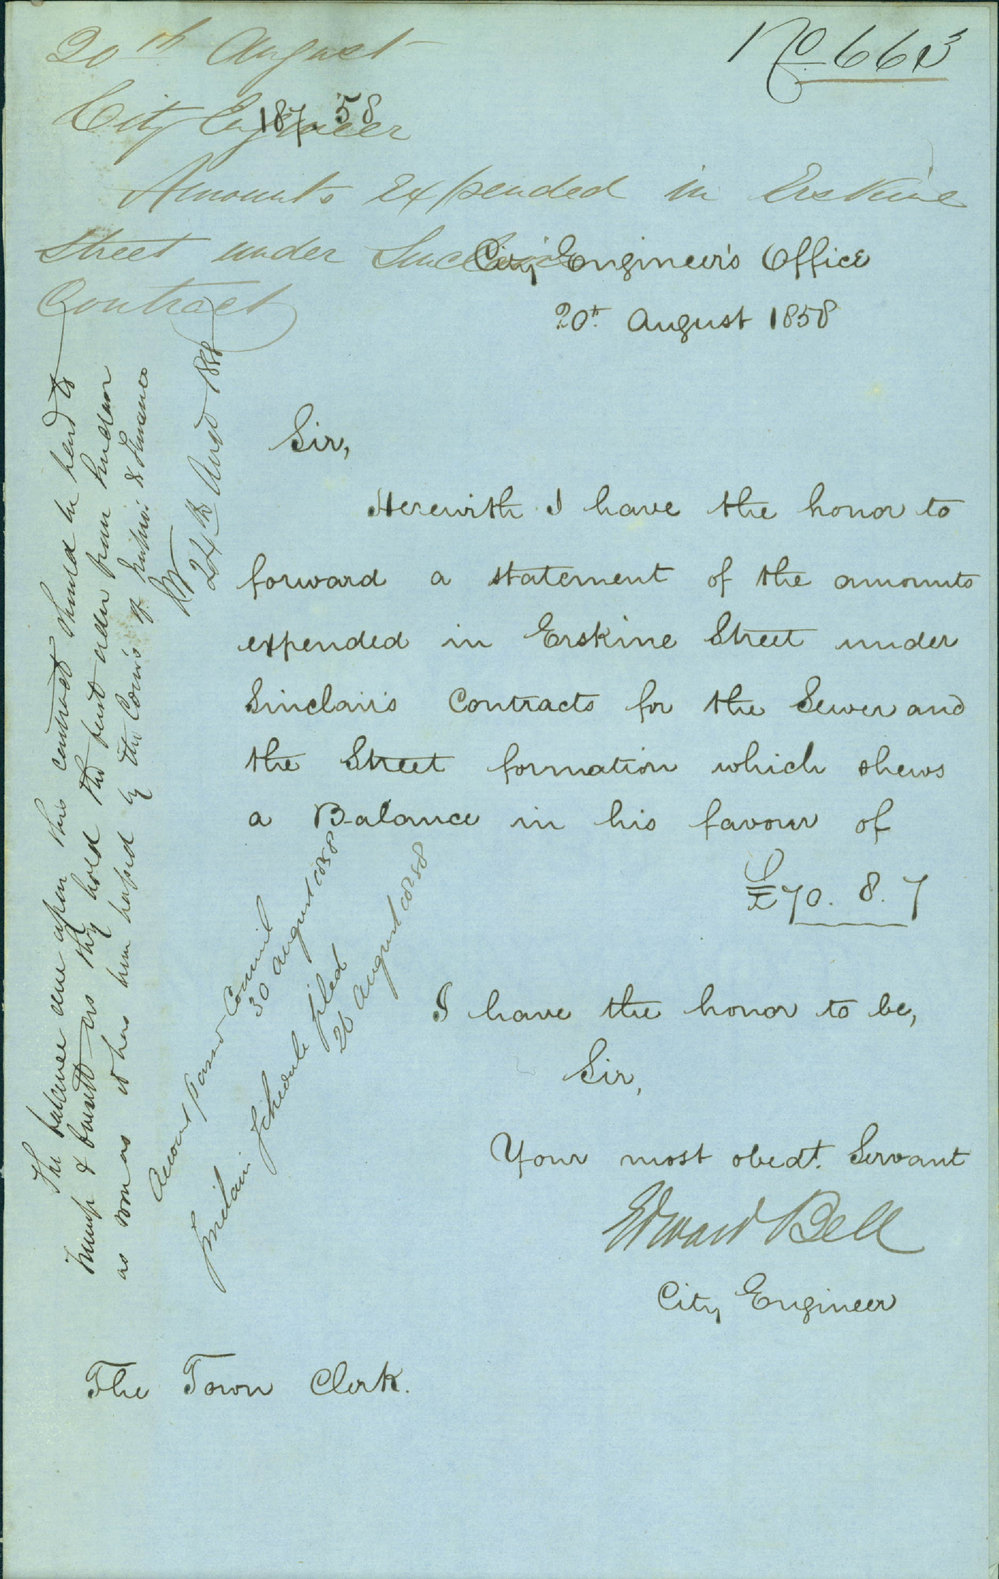 20th August
No 663
City Engineer
187. 58
Amounts expended in Erskine
Street under Sinclair's
Contract
City Engineer's Office
20th August 1858
Sir,
Herewith I have the honor to
forward a statement of the amounts
expended in Erskine Street under
Sinclair's Contracts for the Sewer and
the Street formation which shews
a Balance in his favour of
£70. 8. 7
I have the honor to be,
Sir,
Your most obedt. Servant
Edward Bell
City Engineer
The Town Clerk.
The balance due upon this contract should be paid to
as they hold the order from Sinclair
as soon as it has been passed by the Com'e of & Finance
24th Augt 1858
Account passed Council
30 August 1858
Sinclair Schedule filed
26 August 1858